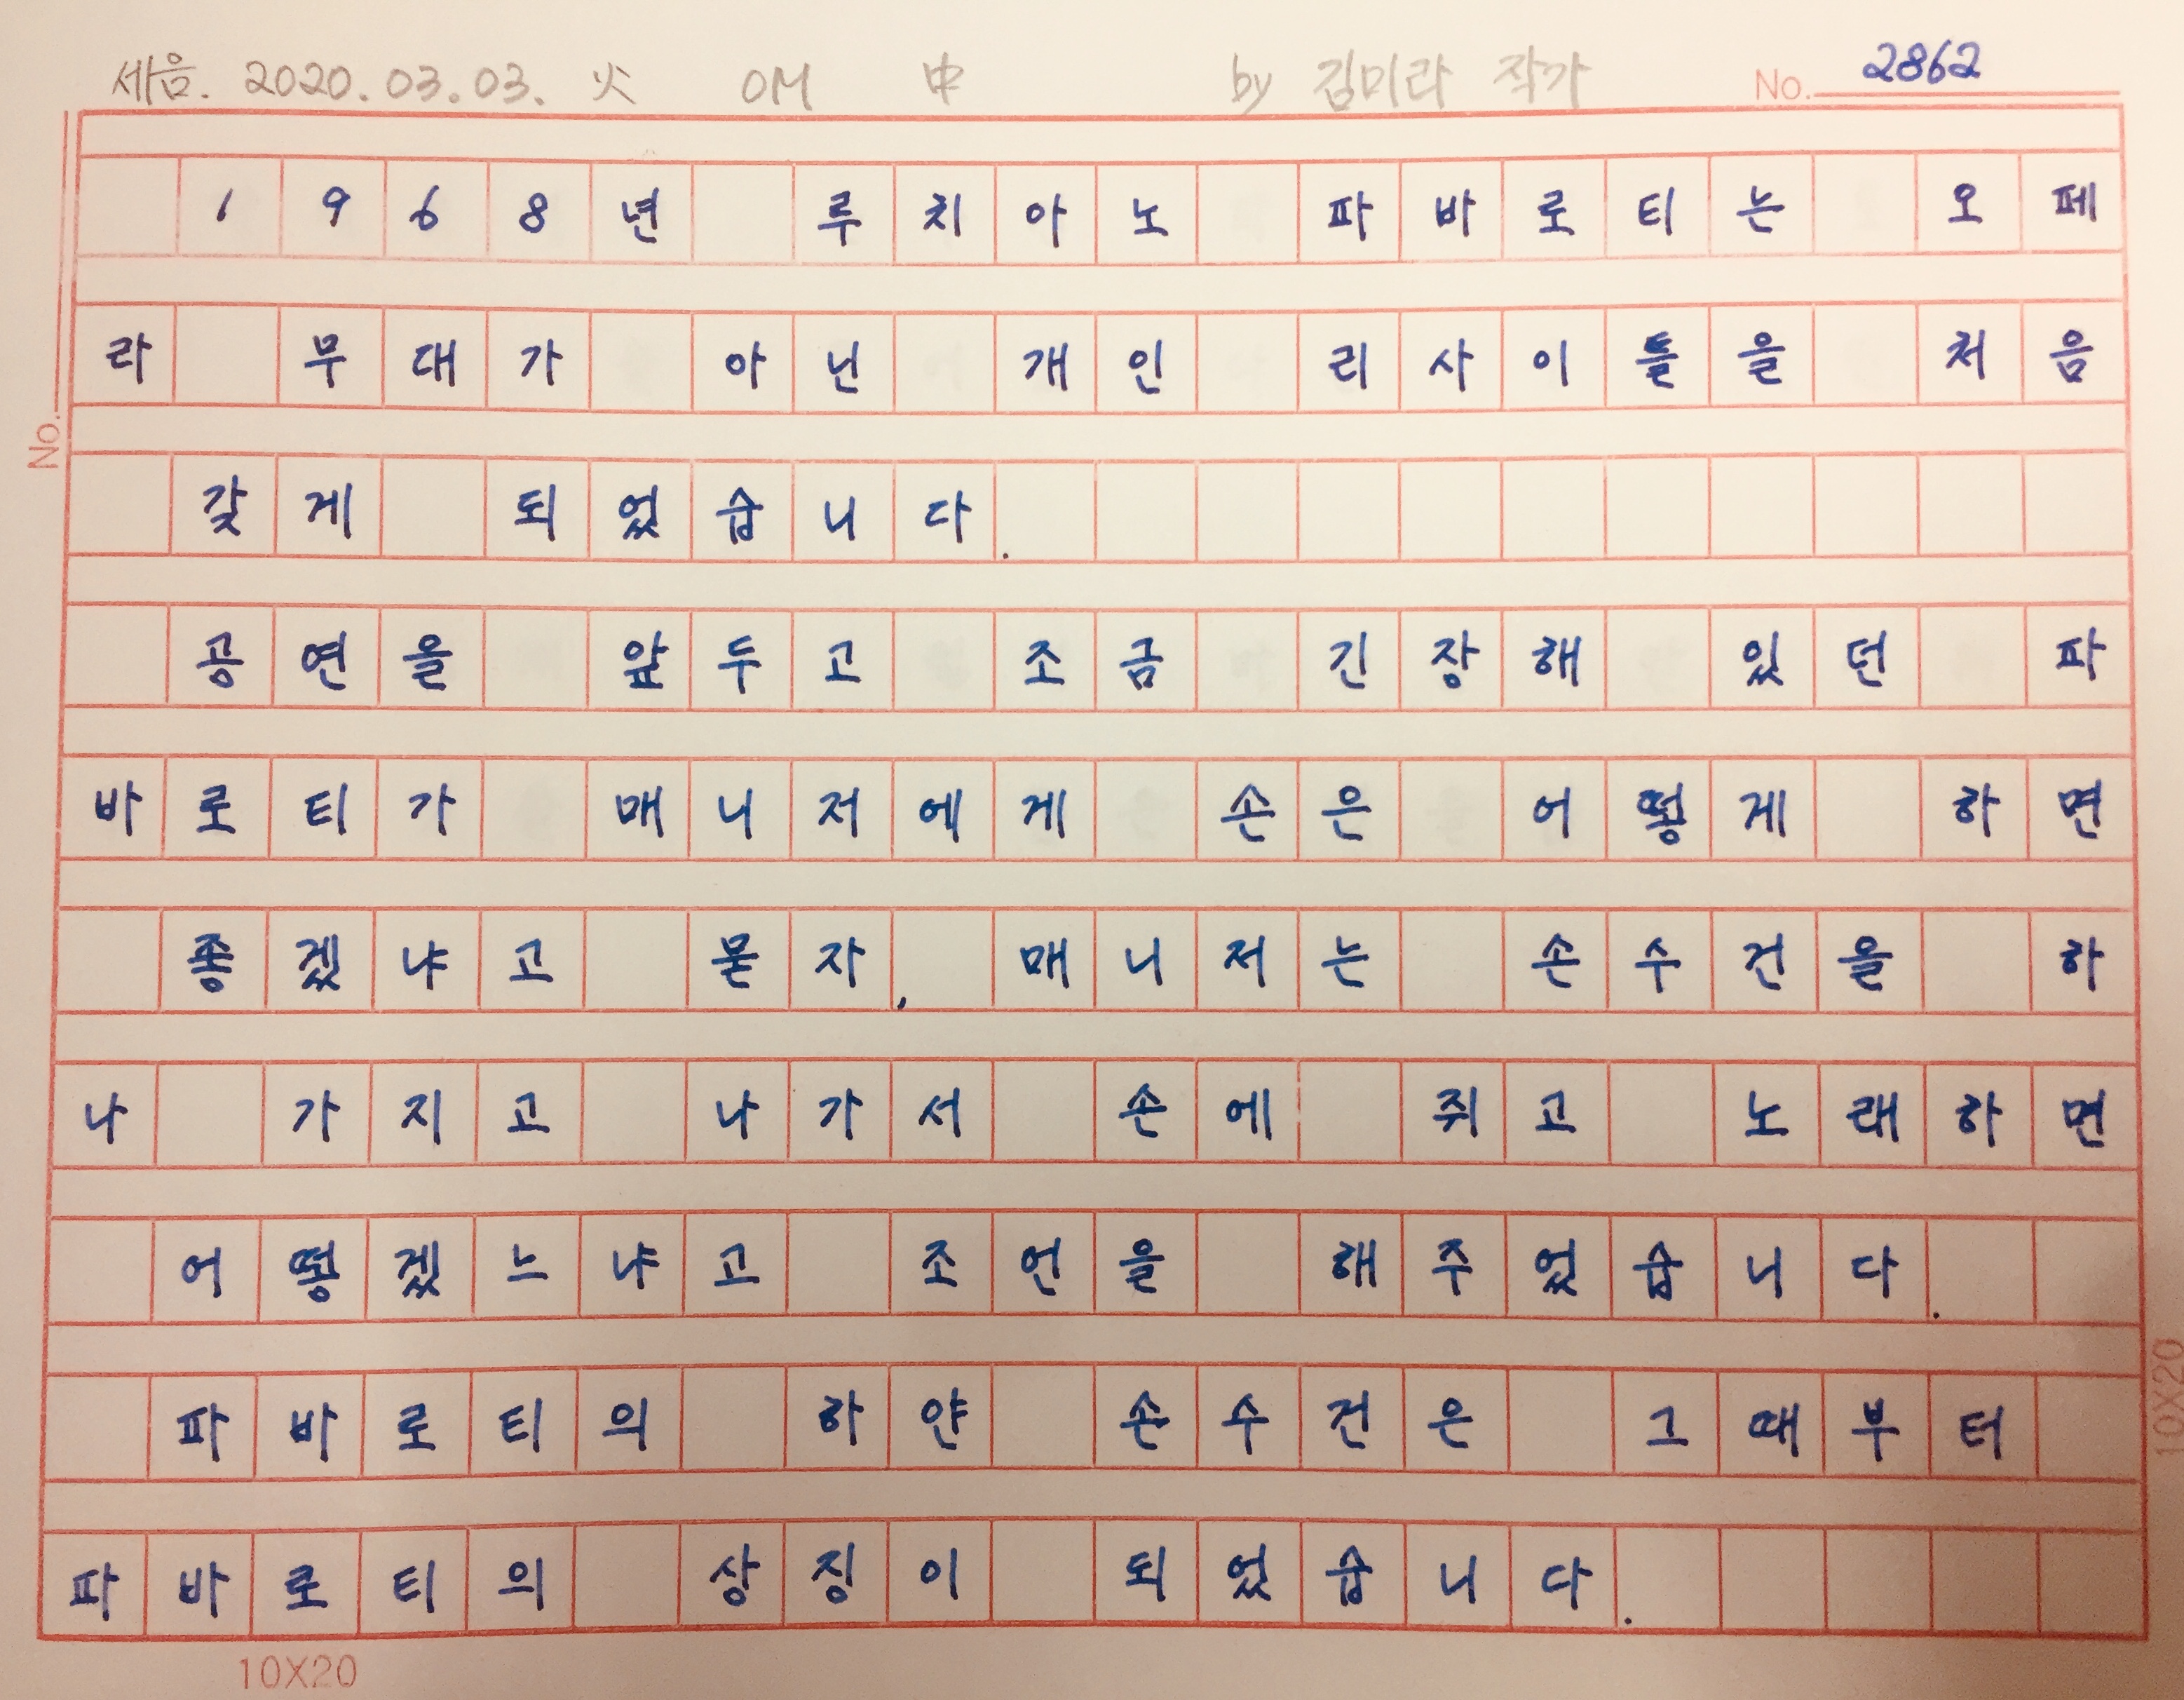 세음. 2020.03.03. 火 OM 中 by 김미라 작가 No. 2862
1968년 루치아노 파바로티는 오페
라 무대가 아닌 개인 리사이틀을 처음
갖게 되었습니다.
공연을 앞두고 조금 긴장해 있던 파
바로티가 매니저에게 손은 어떻게 하면
좋겠냐고 묻자, 매니저는 손수건을 하
나 가지고 나가서 손에 쥐고 노래하면
어떻겠느냐고 조언을 해주었습니다.
파바로티의 하얀 손수건은 그때부터
파바로티의 상징이 되었습니다.
No.
10X20
10X20